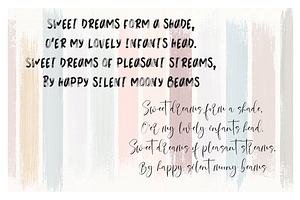 SWEET DREAMS FORM A SHADE,
O'ER MY LOVELY INFANTS HEAD.
SWEET DREAMS OF PLEASANT STREAMS,
BY HAPPY SILENT MOONY BEAMS
Sweet dreams form a shade,
O'er my lovely infants head.
Sweet dreams of pleasant streams,
By happy silent moony beams